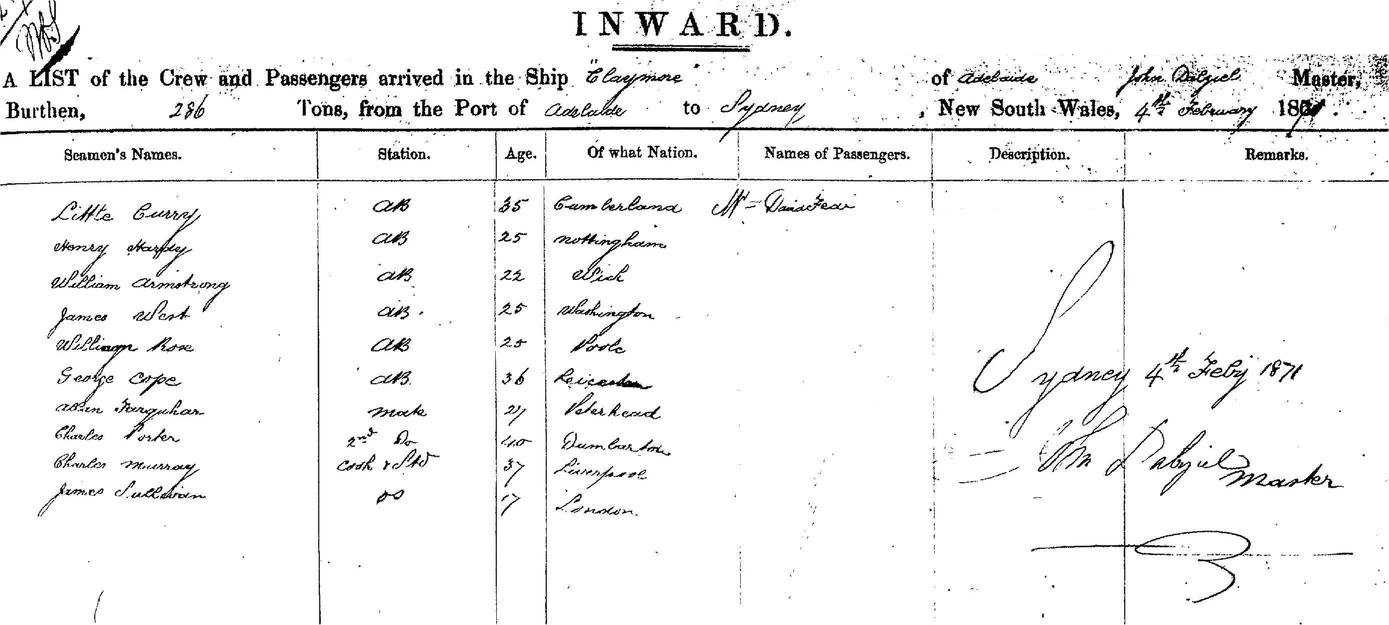 INWARD.
A LIST of the Crew and Passengers arrived in the Ship "Claymore" of Adelaide John Dalziel Master,
Burthen, 286 Tons, from the Port of Adelaide to Sydney, New South Wales, 4th February 1871.
Seamen's Names. Station. Age. Of what Nation. Names of Passengers. Description. Remarks.
Little Curry AB 35 Cumberland Mr David Fear
Henry Hardy AB 25 Nottingham
William Armstrong AB 22 Wick
James West AB. 25 Washington
William Rose AB 25 Poole
George Cope AB. 36 Leicester
Sydney 4th Feby 1871
Farquhar Mate 27 Peterhead
Charles Porter 2nd Do 40 Dumbarton
Charles Murray Cook & Std 37 Liverpool
Jno Dalziel
Master
James Sullivan OS 17 London.